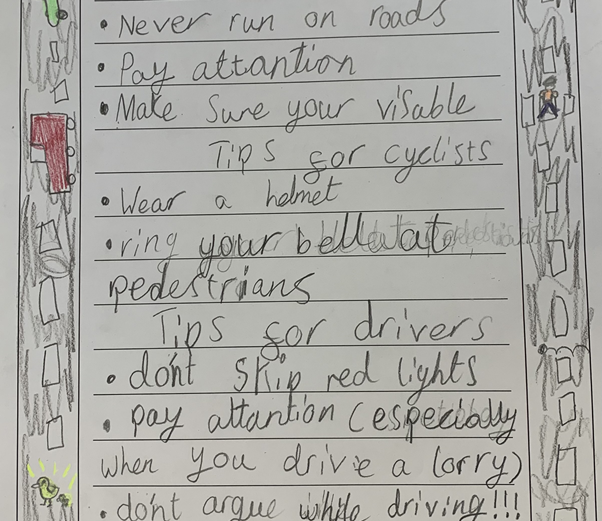 • Never run on roads
• Pay attantion
• Make Sure your visable
Tips for cyclists
• Wear a helmet
• ring your bell at
pedestrians
Tips for drivers
• don't skip red lights
• pay attantion (especially
when you drive a lorry)
• don't argue while driving!!!